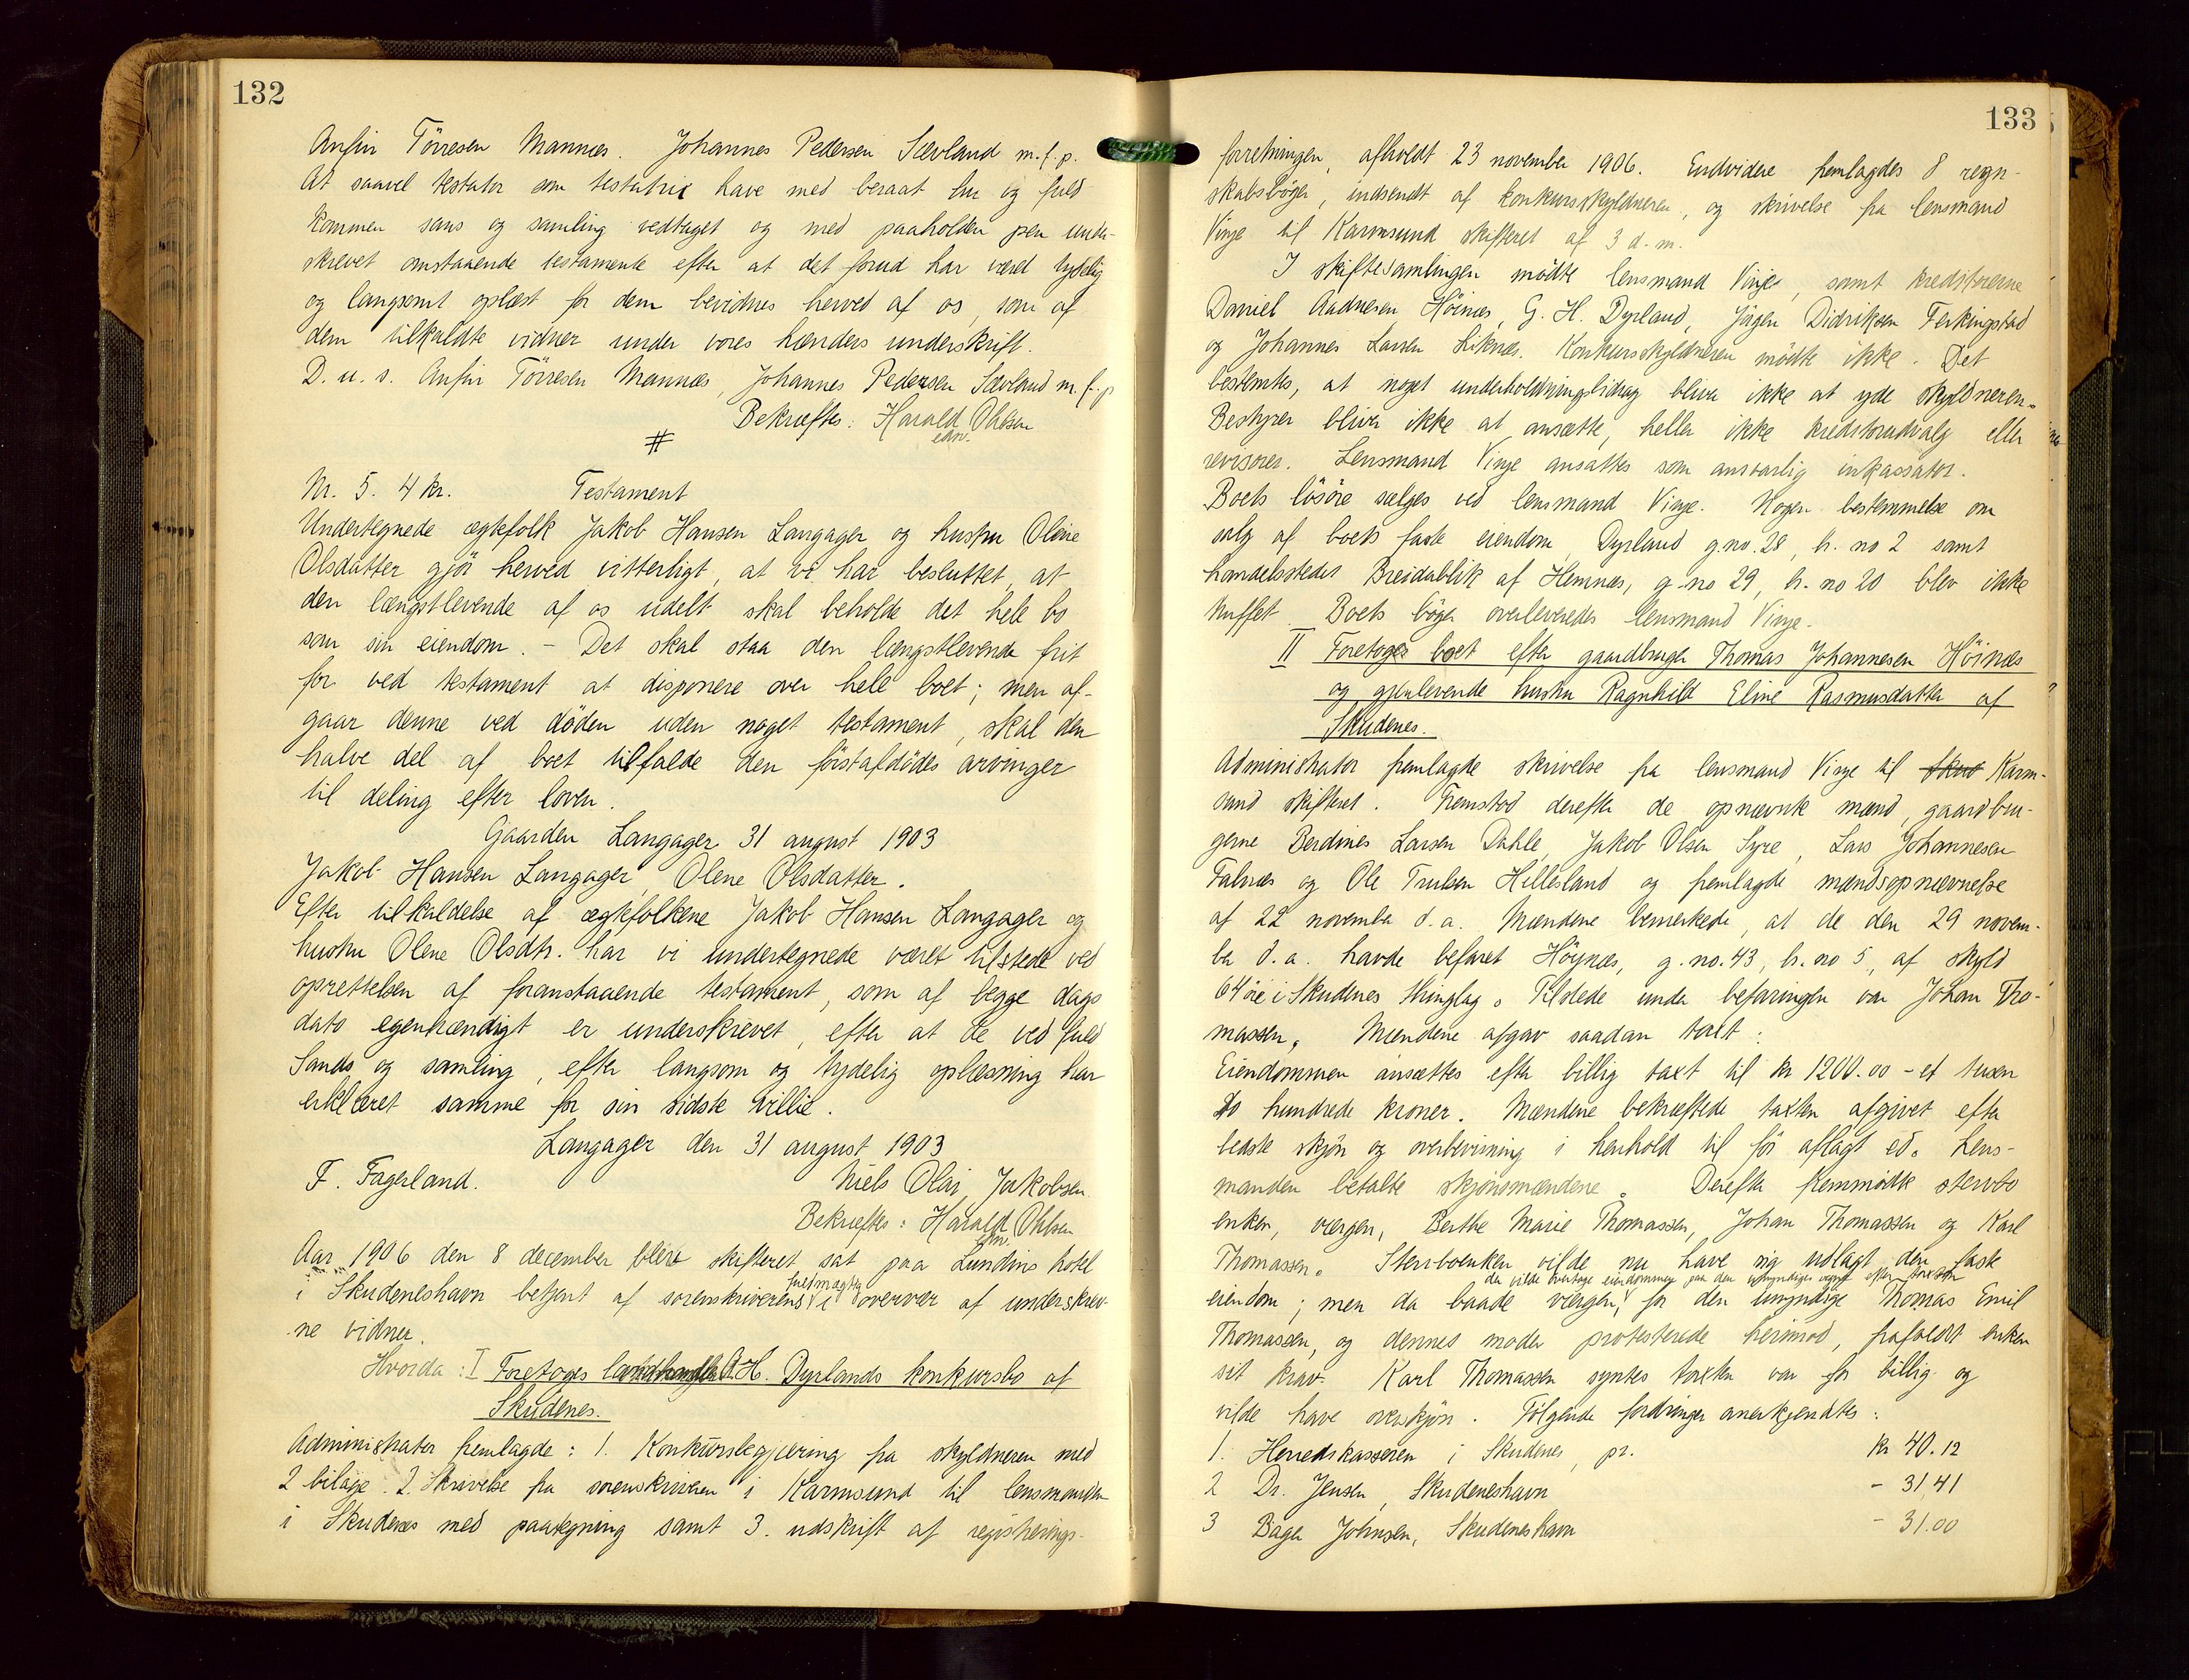 132
Anfin Törresen Mannes. Johannes Pedersen Sævland m. f. p.
At saavel testator som testatrix have med beraat hu og fuld
kommen sans og samling vedtaget og med paaholden pen under-
skrevet omstaaende testamente efter at det forud har været tydelig
og langsomt oplæst for dem bevidnes herved af os, som af
dem tilkaldte vidner under vores hænders underskrift.
D. u. s. Anfin Törresen Mannes, Johannes Pedersen Sævland m. f. p
Bekræftes: Harald Ohlsen
edsv.
#
Nr. 5. 4 kr. Testament
Undertegnede ægtefolk Jakob Hansen Langager og hustru Olene
Olsdatter gjör herved vitterligt, at vi har besluttet, at
den længstlevende af os udelt skal beholde det hele bo
som sin eiendom. - Det skal staa den længstlevende frit
for ved testament at disponere over hele boet; men af-
gaar denne ved döden uden noget testament, skal den
halve del af boet tilfalde den förstafdödes arvinger
til deling efter loven.
Gaarden Langager 31 august 1903
Jakob Hansen Langager, Olene Olsdatter.
Efter tilkaldelse af ægtefolkene Jakob Hansen Langager og
hustru Olene Olsdtr. har vi undertegnede været tilstede ved
oprettelsen af foranstaaende testament, som af begge dags
dato egenhændigt er underskrevet, efter at de ved fuld
Sands og samling, efter langsom og tydelig oplæsning har
erklæret samme for sin sidste villie.
Langager den 31 august 1903
F. Fagerland. Niels Olai Jakobsen.
Bekræftes: Harald Ohlsen
edsv.
Aar 1906 den 8 december blev skifteret sat paa Lundins hotel
fuldmægtig
i Skudeneshavn betjent af sorenskriverens i overvær af underskrev-
ne vidner.
Hvorda: I Foretoges landhandler G. H. Dyrlands konkursbo af
Skudenes.
Administrator fremlagde: 1. Konkursbegjæring fra skyldneren med
2 bilage. 2. Skrivelse fra sorenskriveren i Karmsund til lensmanden
i Skudenes med paategning samt 3. udskrift af registrerings-
133
forretningen, afholdt 23 november 1906. Endvidere fremlagdes 8 regn-
skabsböger, indsendt af konkursskyldneren, og skrivelse fra lensmand
Vinje til Karmsund skifteret af 3 d. m.
I skiftesamlingen mödte lensmand Vinje, samt kreditorerne
Daniel Aadnesen Höines, G. H. Dyrland, Jögen Didriksen Ferkingstad
og Johannes Larsen Liknes. Konkursskyldneren mödte ikke. Det
bestemtes, at noget underholdningsbidrag bliver ikke at yde skyldneren.
Bestyrer bliver ikke at ansætte, heller ikke kreditorudvalg eller
revisorer. Lensmand Vinje ansattes som ansvarlig inkassator.
Boets lösöre sælges ved lensmand Vinje. Nogen bestemmelse om
salg af boets faste eiendom, Dyrland g.no. 28, b. no 2 samt
handelsstedet Breidablik af Hemnes, g. no 29, b. no 20 blev ikke
truffet. Boets böger overleveredes lensmand Vinje.
II Foretoges boet efter gaardbruger Thomas Johannesen Höines
og gjenlevende hustru Ragnhild Eline Rasmusdatter af
Skudenes.
Administrator fremlagde skrivelse fra lensmand Vinje til Skud Karm-
sund skifteret. Fremstod derefter de opnævnte mænd, gaardbru-
gerne Berdines Larsen Dahle, Jakob Olsen Syre, Lars Johannesen
Falnes og Ole Trulsen Hillesland og fremlagde mændsopnævnelse
af 22 november d. a. Mændene bemerkede, at de den 29 novem-
ber d. a. havde befaret Höynes, g. no. 43, b. no 5, af skyld
64 öre i Skudenes thinglag. Tilstede under befaringen var Johan Tho-
massen. Mændene afgav saadan taxt:
Eiendommen ansættes efter billig taxt til kr 1200.00 - et tusen
to hundrede kroner. Mændene bekræftede taxten afgivet efter
bedste skjön og overbevisning i henhold til för aflagt ed. Lens-
manden betalte skjönsmændene. Derefter fremmödte stervbo
enken, værgen, Berthe Marie Thomassen, Johan Thomassen og Karl
Thomassen. Stervboenken vilde nu have sig udlagt den faste
der vilde overtage eiendommen paa den umyndiges vegne efter taxten
eiendom; men da baade værgen, for den umyndige Thomas Emil
Thomassen, og dennes moder protesterede herimod, frafaldt enken
sit krav. Karl Thomassen syntes taxten var for billig og
vilde have overskjön. Fölgende fordringer anerkjendtes:
1. Herredskassereren i Skudenes, pr. kr 40.12
2 Dr. Jensen, Skudeneshavn - 31,41
3 Bager Johnsen, Skudeneshavn - 31.00